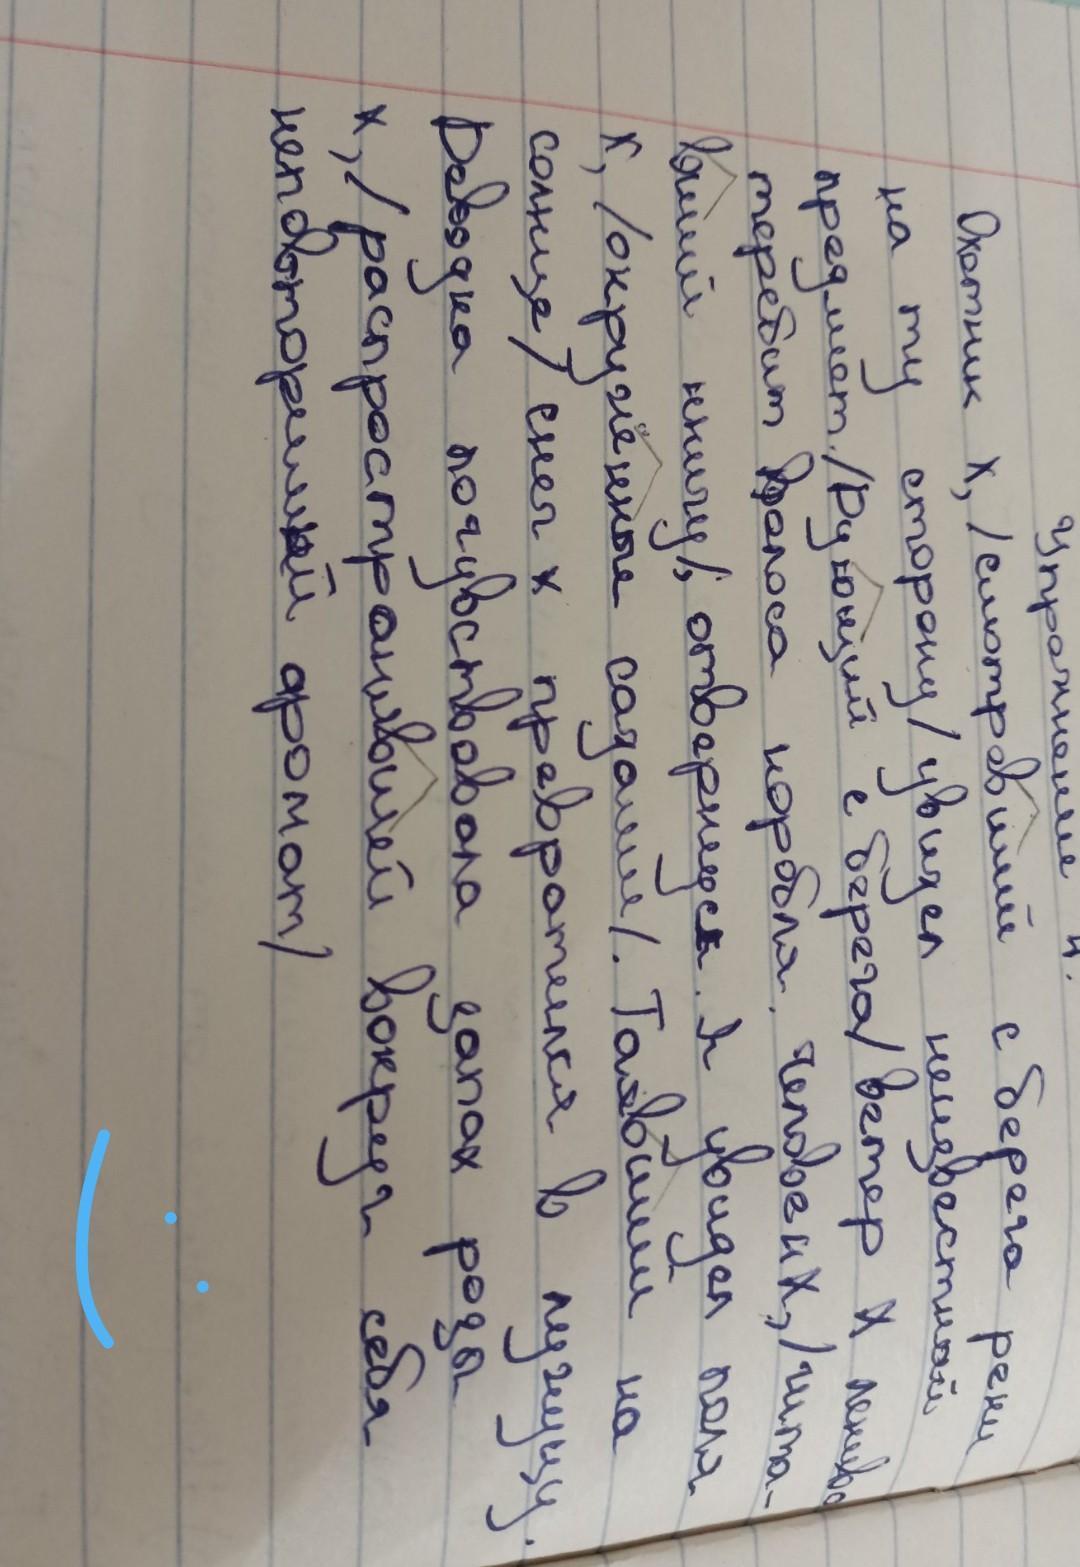 Упражнение 4.
Охотник х, /смотревший с берега реки
на ту сторону/ увидел неизвестный
предмет. /Дующий с берега/ ветер х лениво
теребит волоса корабля. Человек х, /чита-
вший книгу/, отвернулся. Я увидел поля
х, /окружённые садами/. Таявший на
солнце/ снег х превратился в лужицу.
Деводка почувствовала запах розы
х, /распространявшей вокруг себя
неповторимый аромат/